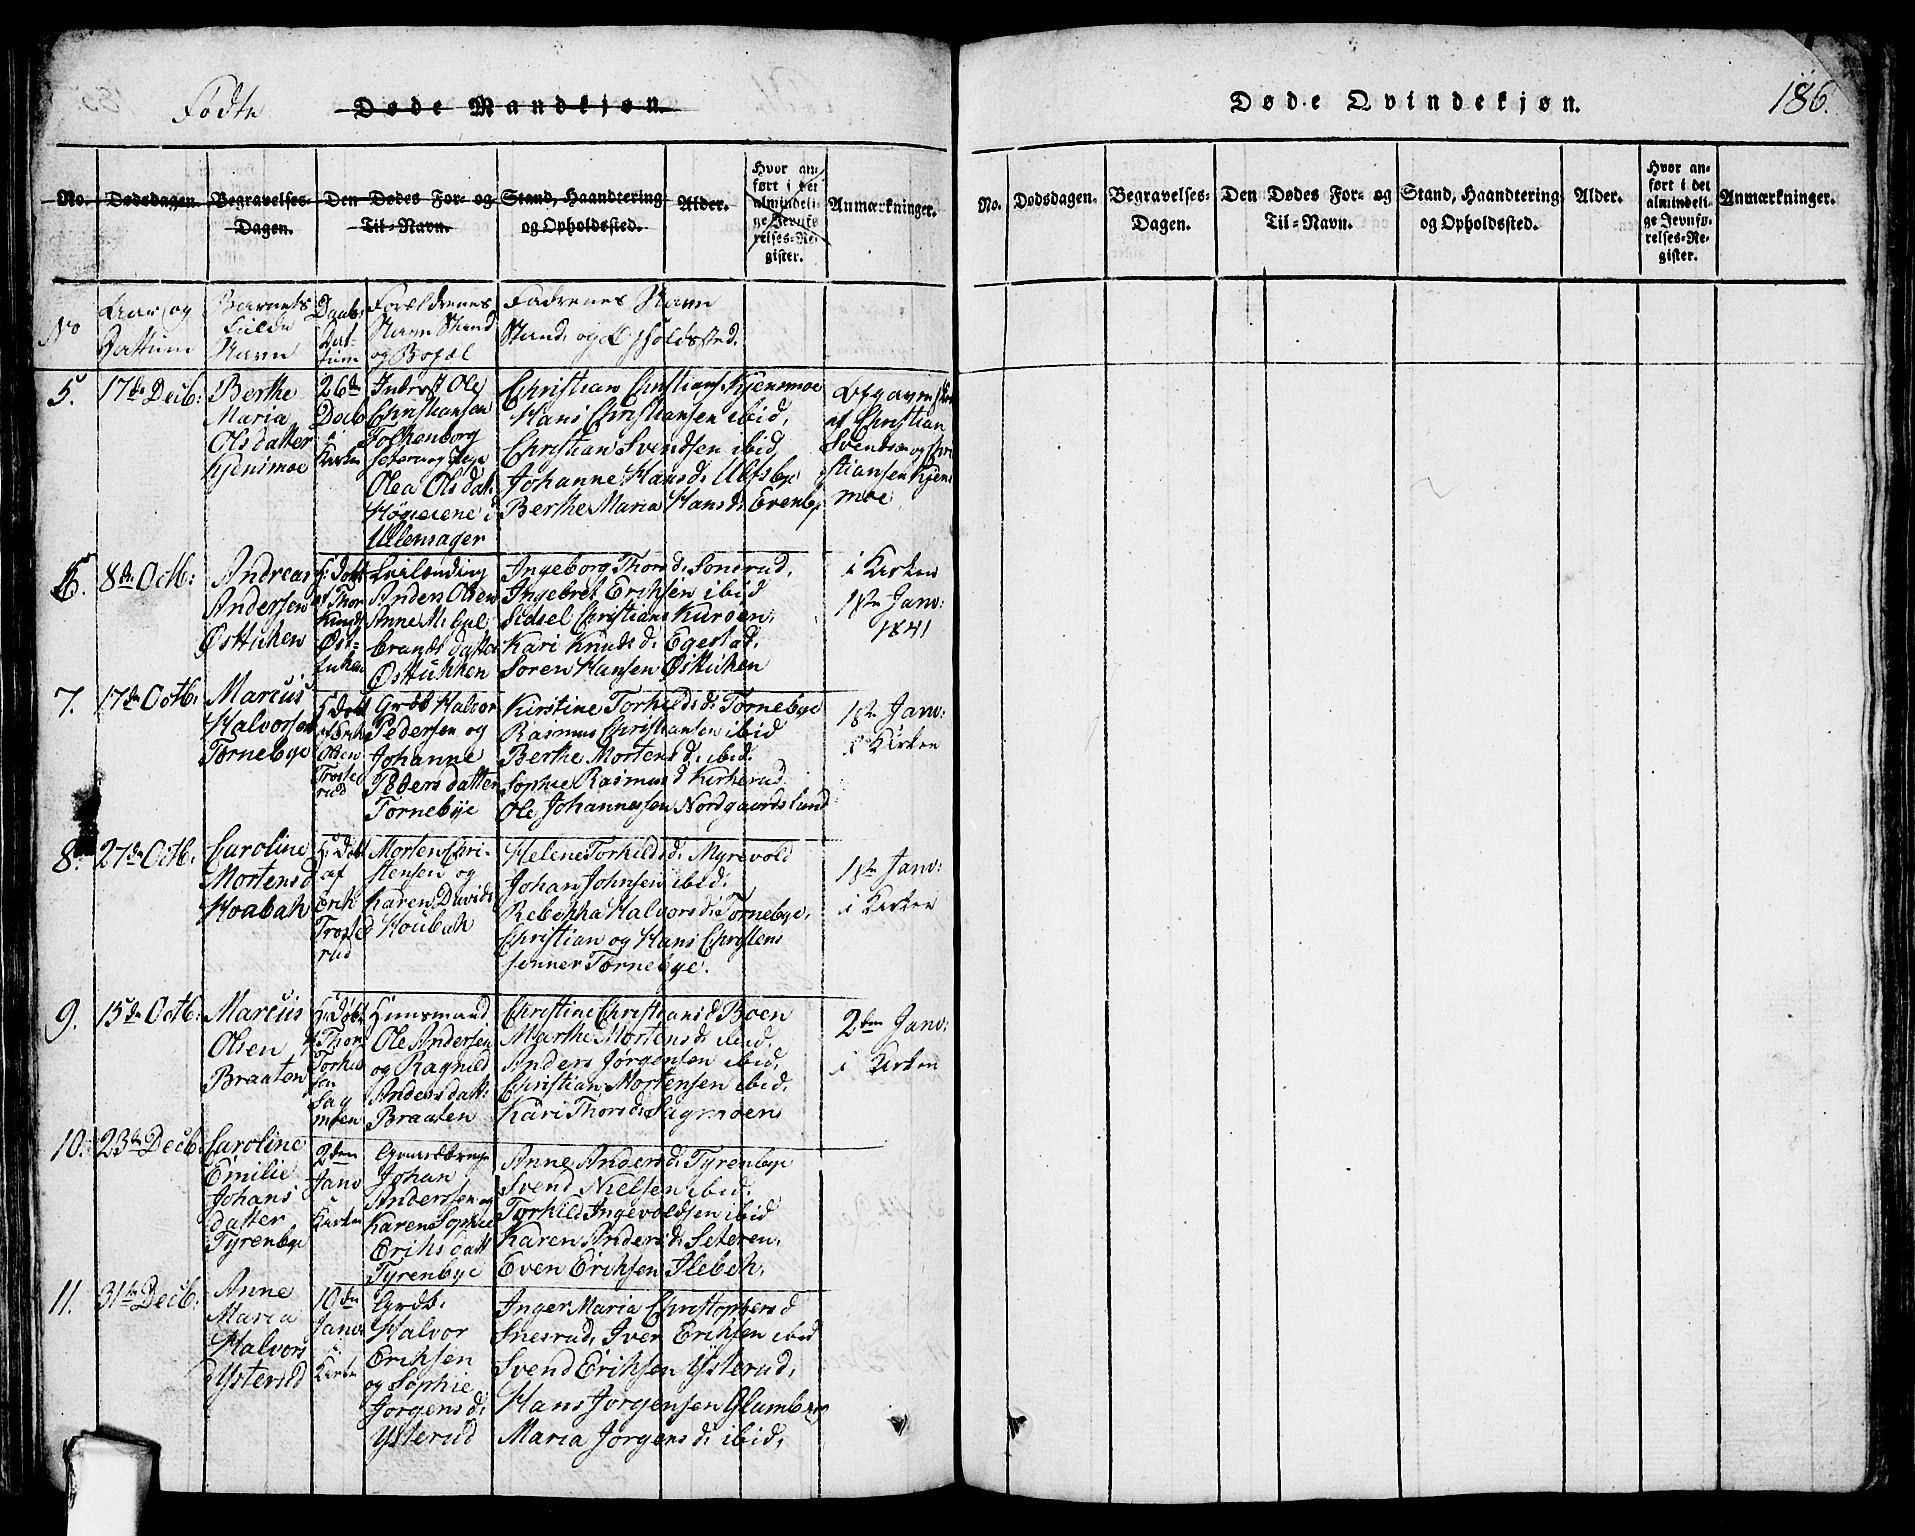 Fødte Døde Mandkjøn.
No. Dødsdagen. Begravelses-Dagen. Den Dødes For- og Til-Navn. Stand, Haandtering og Opholdssted. Alder. Hvor anført i det almindelige Jevnførelses-Register. Anmærkninger.
No
Aar og
Dattum
Barnets
fulde
Navn
Daab:
Dat-
tum
Forældrenes
Navn Stand
og Bopæl
Fadrenes Navn
Stand og Opholdsted.
5.
17de Decb:
Berthe
Maria
Olsdatter
Kjensmoe
26de
Decb
i
Kirken
Inderst Ole
Christiansen
Folkenborg
Olea Olsdat:
i
Ullensager
Christian Christians Kjensmoe
Hans Christiansen ibid,
Christian Svendsen ibid,
Johanne Hansd: Ulfsbye
Berthe Maria Hansd: Evenby
af Christian
Svendsen og Chri
stiansen Kjens
moe
6.
8de Octb:
Andreas
Andersen
Østtuken
H: Døbt
af Thor
Knuds
Øst-
tuken
Leilænding
Anders Olsen
Anne M: Gul
brands datter
Østtukken
Ingeborg Thorsd: Sonsrud,
Ingebret Eriksen ibid
Sidsel Christians Kuroen,
Kari Knudsd: Egestad,
Soren Hansen Østtuken
i Kirken
1ste Janv:
1841
7.
17de Octb:
Marcus
Halvorsen
Tornebye
H: Døbt
af Erik
Olsen
Troste
rud
Grdb Halvor
Pedersen og
Johanne
Pedersdatter
Tornebye
Kirstine Torkildsd: Tornebye
Rasmus Christiansen ibid
Berthe Mortensd: ibid.
Sophie Rasmusd Kirkerud
Ole Johannessen Nordgaardslund
1ste Janv:
i Kirken
8.
27de Octb:
Caroline
Mortensd
Hoabak
H: Døbt
af
Erik
Troste
rud
Morten Chri-
stensen og
Karen Davids
d Houbak
Helene Torkildsd: Myrevold
Johan Johnsen ibid.
Rebekka Halvorsd: Tornebye,
Christian og Hans Christens
sønner Tornebye.
1ste Janv:
i Kirken
9.
15de Octb:
Marcus
Olsen
Braaten
H: Døbt
Thor
Torkild
sen
Sag
moen
Huusmand
Ole Andersen
og Ragnild
Andersdatt:
Braaten
Christine Christiansd Boen
Marthe Mortensd: ibid.
Anders Jørgensen ibid,
Christian Mortensen ibid,
Kari Thorsd: Sagmoen
2den Janv:
i Kirken
10.
23de Decb:
Caroline
Emilie
Johans
datter
Tyrenbye
2den
Janv
i
Kirken
Gaardbruger
Johan
Anderssen og
Karen Sophie
Eriksdatt
Tyrenbye
Anne Andersd: Tyrenbye
Svend Nielsen ibid.
Torkild Ingevoldsen ibid
Karen Andersd: Seteren,
Even Eriksen Ilebek,
11.
31te Decb:
Anne
Maria
Halvors
d Ysterud
10de
Janv
i
Kirken
Grdb:
Halvor
Eriksen
og Sophie
Jorgensd:
Ysterud
Inger Maria Christophersd
Snesrud, Iver Eriksen ibid
Svend Eriksen Ysterud,
Hans Jorgensen Glumberg
Maria Jorgensd: ibid,
Døde Qvindekjøn.
186.
No. Dødsdagen. Begravelses-Dagen. Den Dødes For- og Til-Navn. Stand, Haandtering og Opholdssted. Alder. Hvor anført i det almindelige Jevnførelses-Register. Anmærkninger.